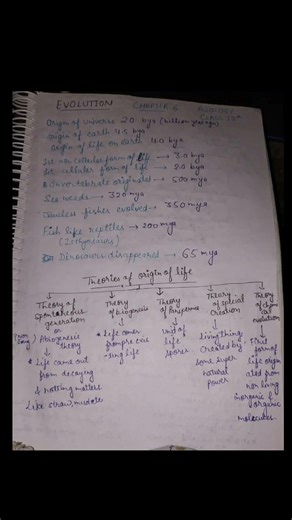 EVOLUTION CHAPTER 6 BIOLOGY
CLASS 12th
Origin of universe 20 bya (billion years ago)
origin of earth 4.5 bya
Origin of life on earth 4.0 bya
1st non cellular form of life → 3.0 bya
1st cellular form of life → 2.0 bya
Invertebrate originated → 500 mya
Sea weeds → 320 mya
Jawless fishes evolved → 350 mya
Fish like reptiles → 200 mya
(Icthyosaurs)
Dinosaurs disappeared → 65 mya
Theories of origin of life
Theory of Spontaneous generation or
Abiogenesis theory
Life came out from decaying & rotting matters
Like straw, mud etc
Theory of biogenesis
Life comes from pre exis-ting life
Theory of Panspermia
unit of life spores
Theory of special creation
living thing created by some super natural power
Theory of chemical evolution
first form of life originated from non living inorganic & organic molecules.